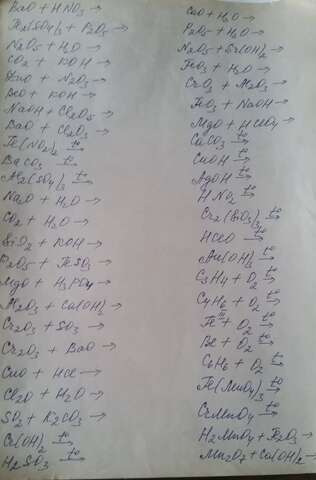 BaO + HNO3 →
Al2(SO4)3 + P2O5 →
N2O5 + H2O →
CO2 + KOH →
+ N2O3 →
BeO + KOH →
NaOH + Cl2O5 →
BaO + Cl2O3 →
Fe(NO2)2 t° →
BaCO3 t° →
Al2(SO4)3 t° →
Na2O + H2O →
CO2 + H2O →
SiO2 + KOH →
P2O5 + FeSO3 →
MgO + H3PO4 →
Al2O3 + Ca(OH)2 →
Cr2O3 + SO3 →
Cr2O3 + BaO →
CuO + HCl →
Cl2O + H2O →
SO2 + K2CO3 →
Cr(OH)2 t° →
H2SO3 t° →
CaO + H2O →
P2O5 + H2O →
N2O5 + Sr(OH)2 →
FeO3 + H2O →
CrO3 + Al2O3 →
FeO3 + NaOH →
MgO + HClO4 →
CaCO3 t° →
CuOH t° →
AgOH t° →
HNO2 t° →
Cr2(SiO3)3 t° →
HClO t° →
Au(OH)3 t° →
C3H4 + O2 t° →
C4H6 + O2 t° →
Fe III + O2 t° →
Be + O2 t° →
C6H6 + O2 t° →
Fe(MnO4)3 t° →
CrMnO4 t° →
H2MnO4 + P2O3 →
Mn2O7 + Ca(OH)2 →